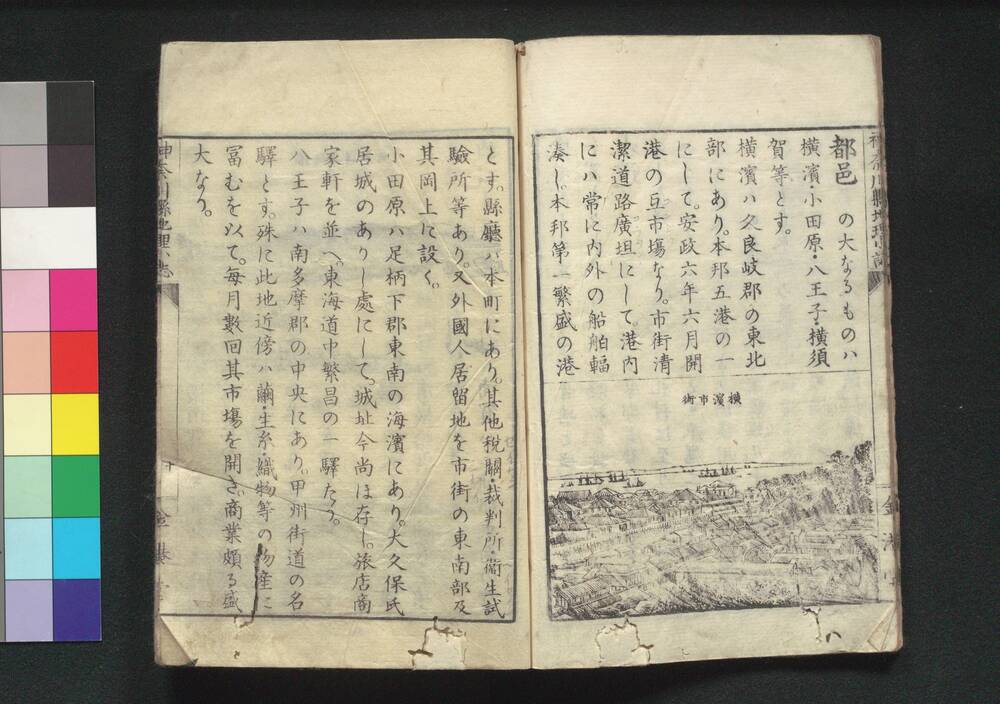 都邑 の大なるものハ
横濱・小田原・八王子・横須
賀等とす。
橫濱ハ久良岐郡の東北
部にあり。本邦五港の一
にして。安政六年六月開
港の互市塲なり。市街清
潔道路廣坦にして。港内
にハ常に内外の船舶輻
湊し。本邦第一繁盛の港
橫濱市街
とす。縣廳ハ本町にあり。其他税關・裁判所・衞生試
驗所等あり。又外國人居留地を市街の東南部及
其岡上に設く。
小田原ハ足柄下郡東南の海濱にあり。大久保氏
居城のありし處にして。城址今尚ほ存し。旅店商
家軒を並べ。東海道中繁昌の一驛たり。
八王子ハ南多摩郡の中央にあり。甲州街道の名
驛とす。殊に此地近傍ハ繭・生糸・織物等の物産に
冨むを以て。每月數回其市塲を開き。商業頗る盛
大なり。
神奈川縣地理小志